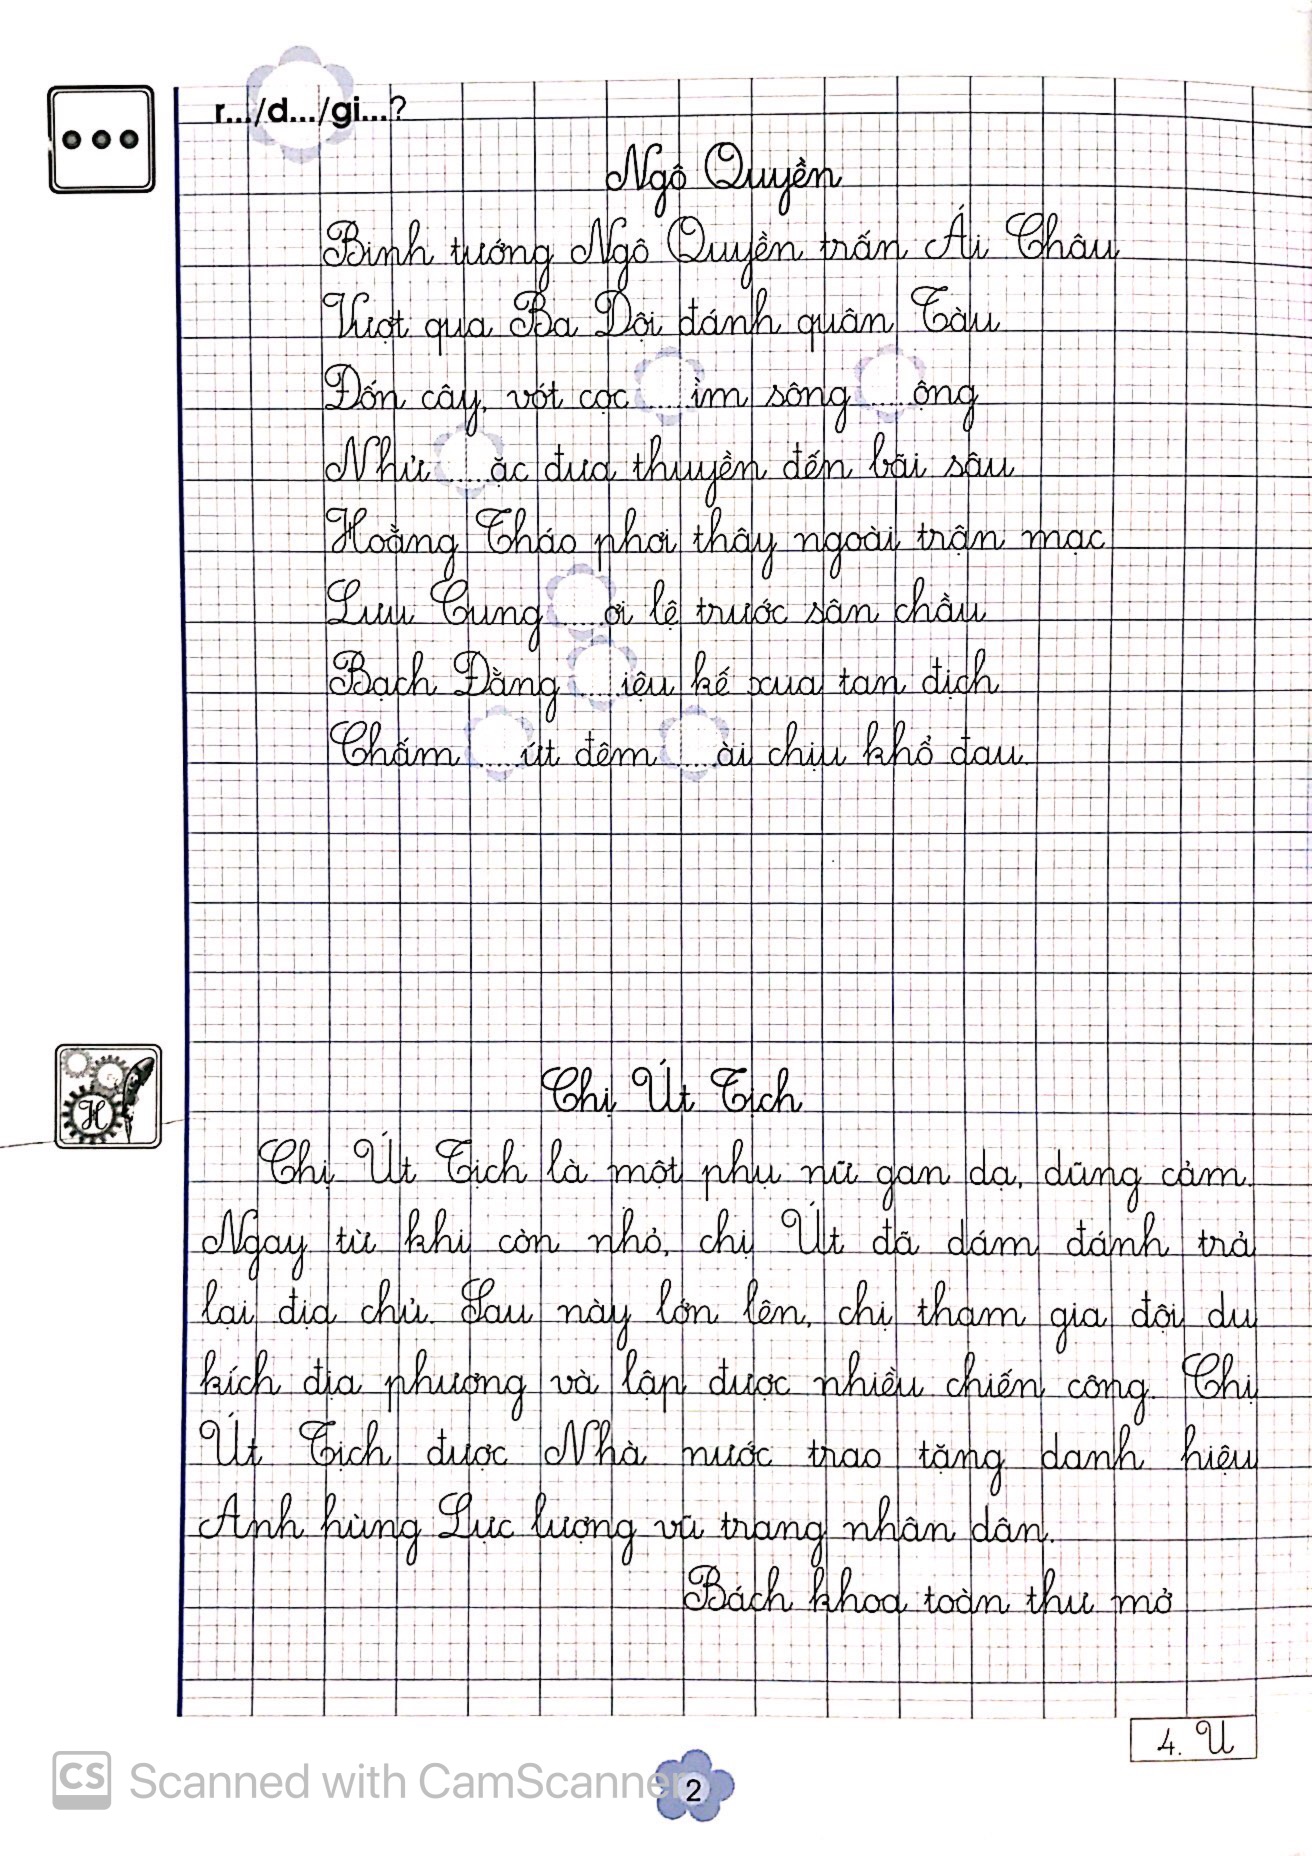 r.../d.../gi...?
Ngô Quyền
Binh tướng Ngô Quyền trấn Ái Châu
Vượt qua Ba Dội đánh quân Tàu
Đốn cây, vót cọc .....ìm sông .....ộng
Nhử .....ặc đưa thuyền đến bãi sâu
Hoằng Tháo phơi thây ngoài trận mạc
Lưu Cung .....ơi lệ trước sân chầu
Bạch Đằng .....iệu kế xua tan địch
Chấm .....ứt đêm .....ài chịu khổ đau.
H
Chị Út Tịch
Chị Út Tịch là một phụ nữ gan dạ, dũng cảm.
Ngay từ khi còn nhỏ, chị Út đã dám đánh trả
lại địa chủ. Sau này lớn lên, chị tham gia đội du
kích địa phương và lập được nhiều chiến công. Chị
Út Tịch được Nhà nước trao tặng danh hiệu
Anh hùng Lực lượng vũ trang nhân dân.
Bách khoa toàn thư mở
4. U
CS Scanned with CamScanner
2